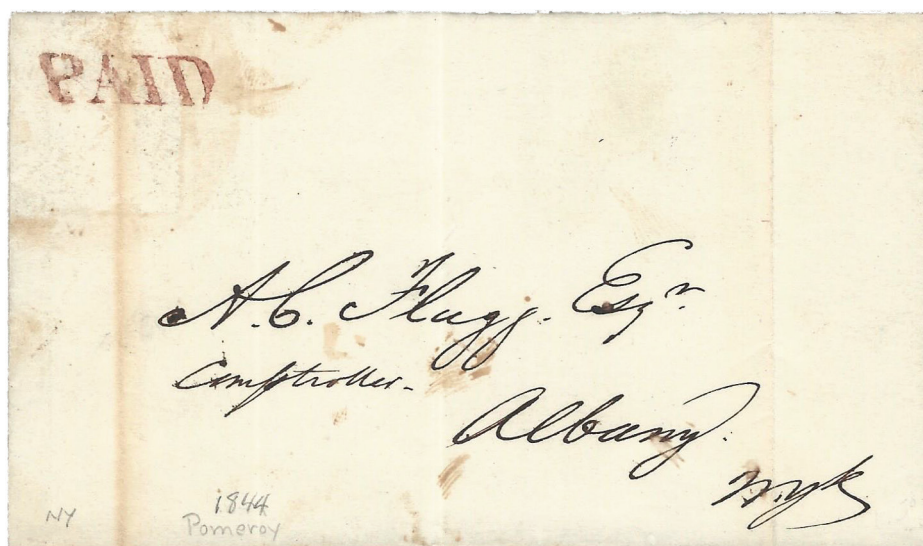 PAID
A. C. Flagg. Esqr
Comptroller.
Albany.
N.Yk
1844
NY
Pomeroy